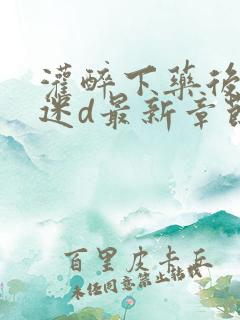 灌醉下药后
迷d最新章节
百里皮卡丘
未经同意禁止转载